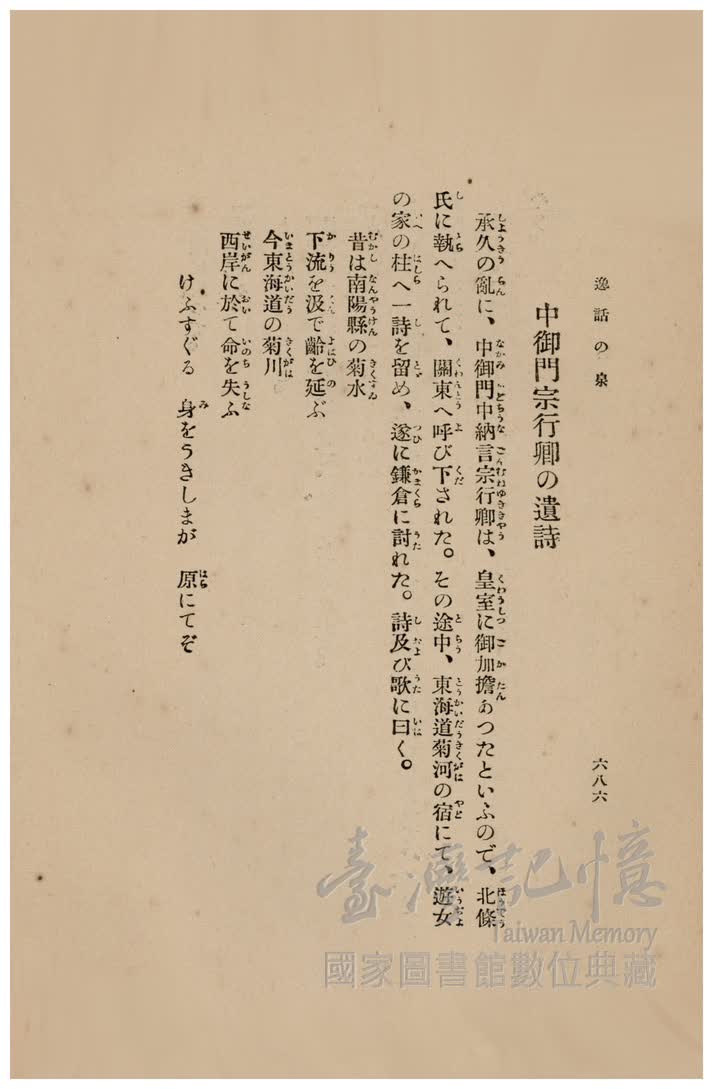 逸話の泉
六八六
中御門宗行卿の遺詩
承久の亂に、中御門中納言宗行卿は、皇室に御加擔あつたといふので、北條
氏に執へられて、關東へ呼び下された。その途中、東海道菊河の宿にて、遊女
の家の柱へ一詩を留め、遂に鎌倉に討れた。詩及び歌に曰く。
昔は南陽縣の菊水
下流を汲で齡を延ぶ
今東海道の菊川
西岸に於て命を失ふ
けふすぐる 身をうきしまが 原にてぞ
臺灣記憶
Taiwan Memory
國家圖書館數位典藏